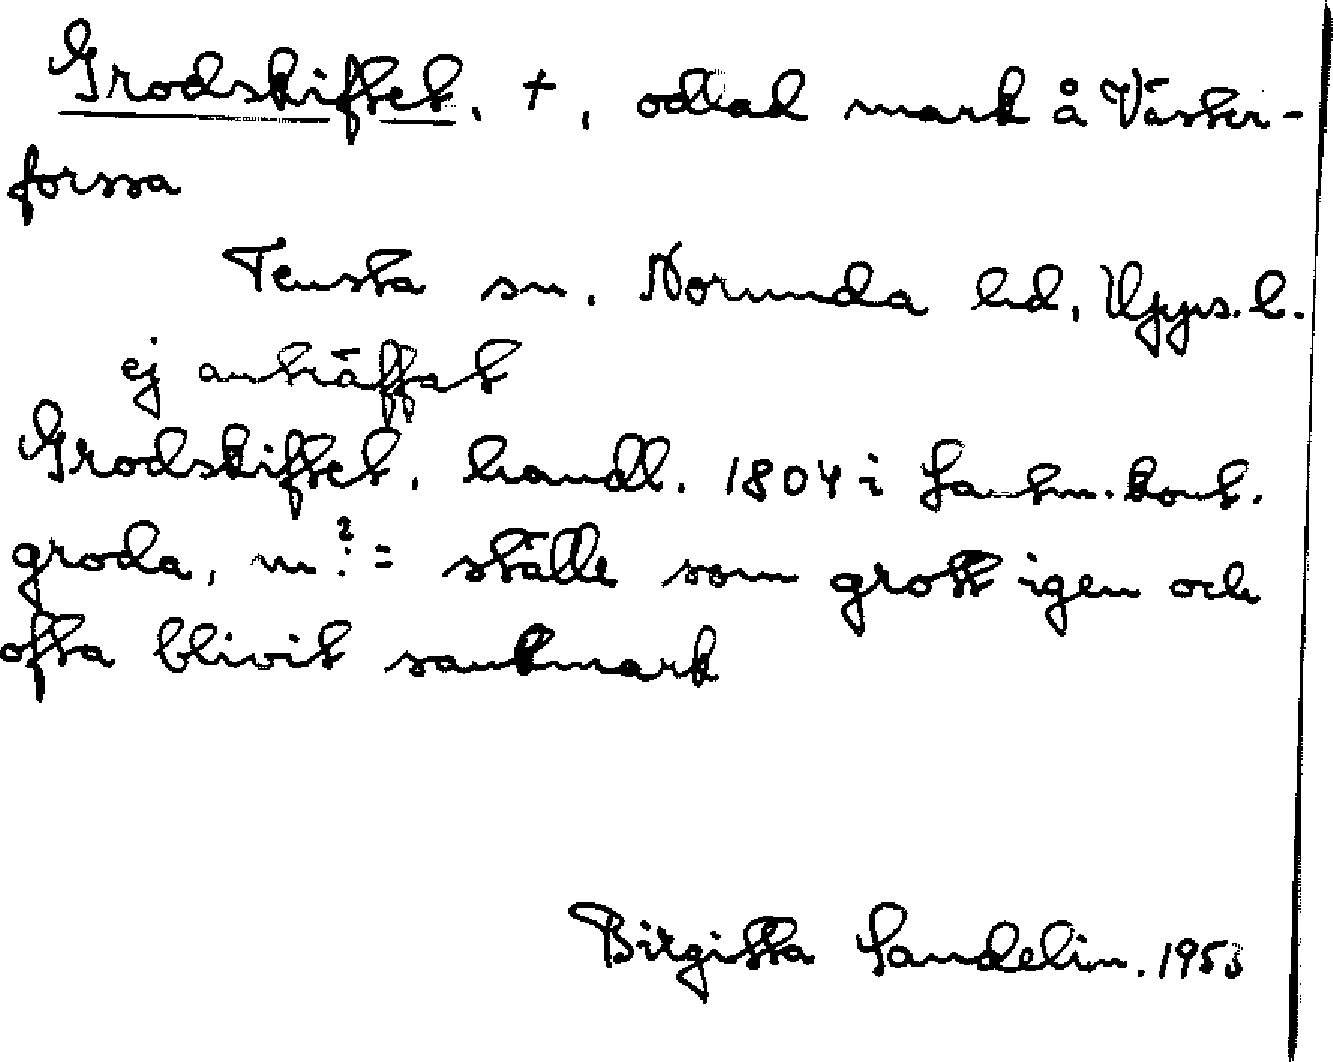 Grodskiftet, +, odlad mark å Väster-
forssa
Tensta sn. Norunda hd, Upps. l.
ej anträffat
Grodskiftet, handl. 1804 i Lantm.kont.
groda, m?: = ställe som grott igen och
ofta blivit sankmark
Birgitta Sandelin. 1953